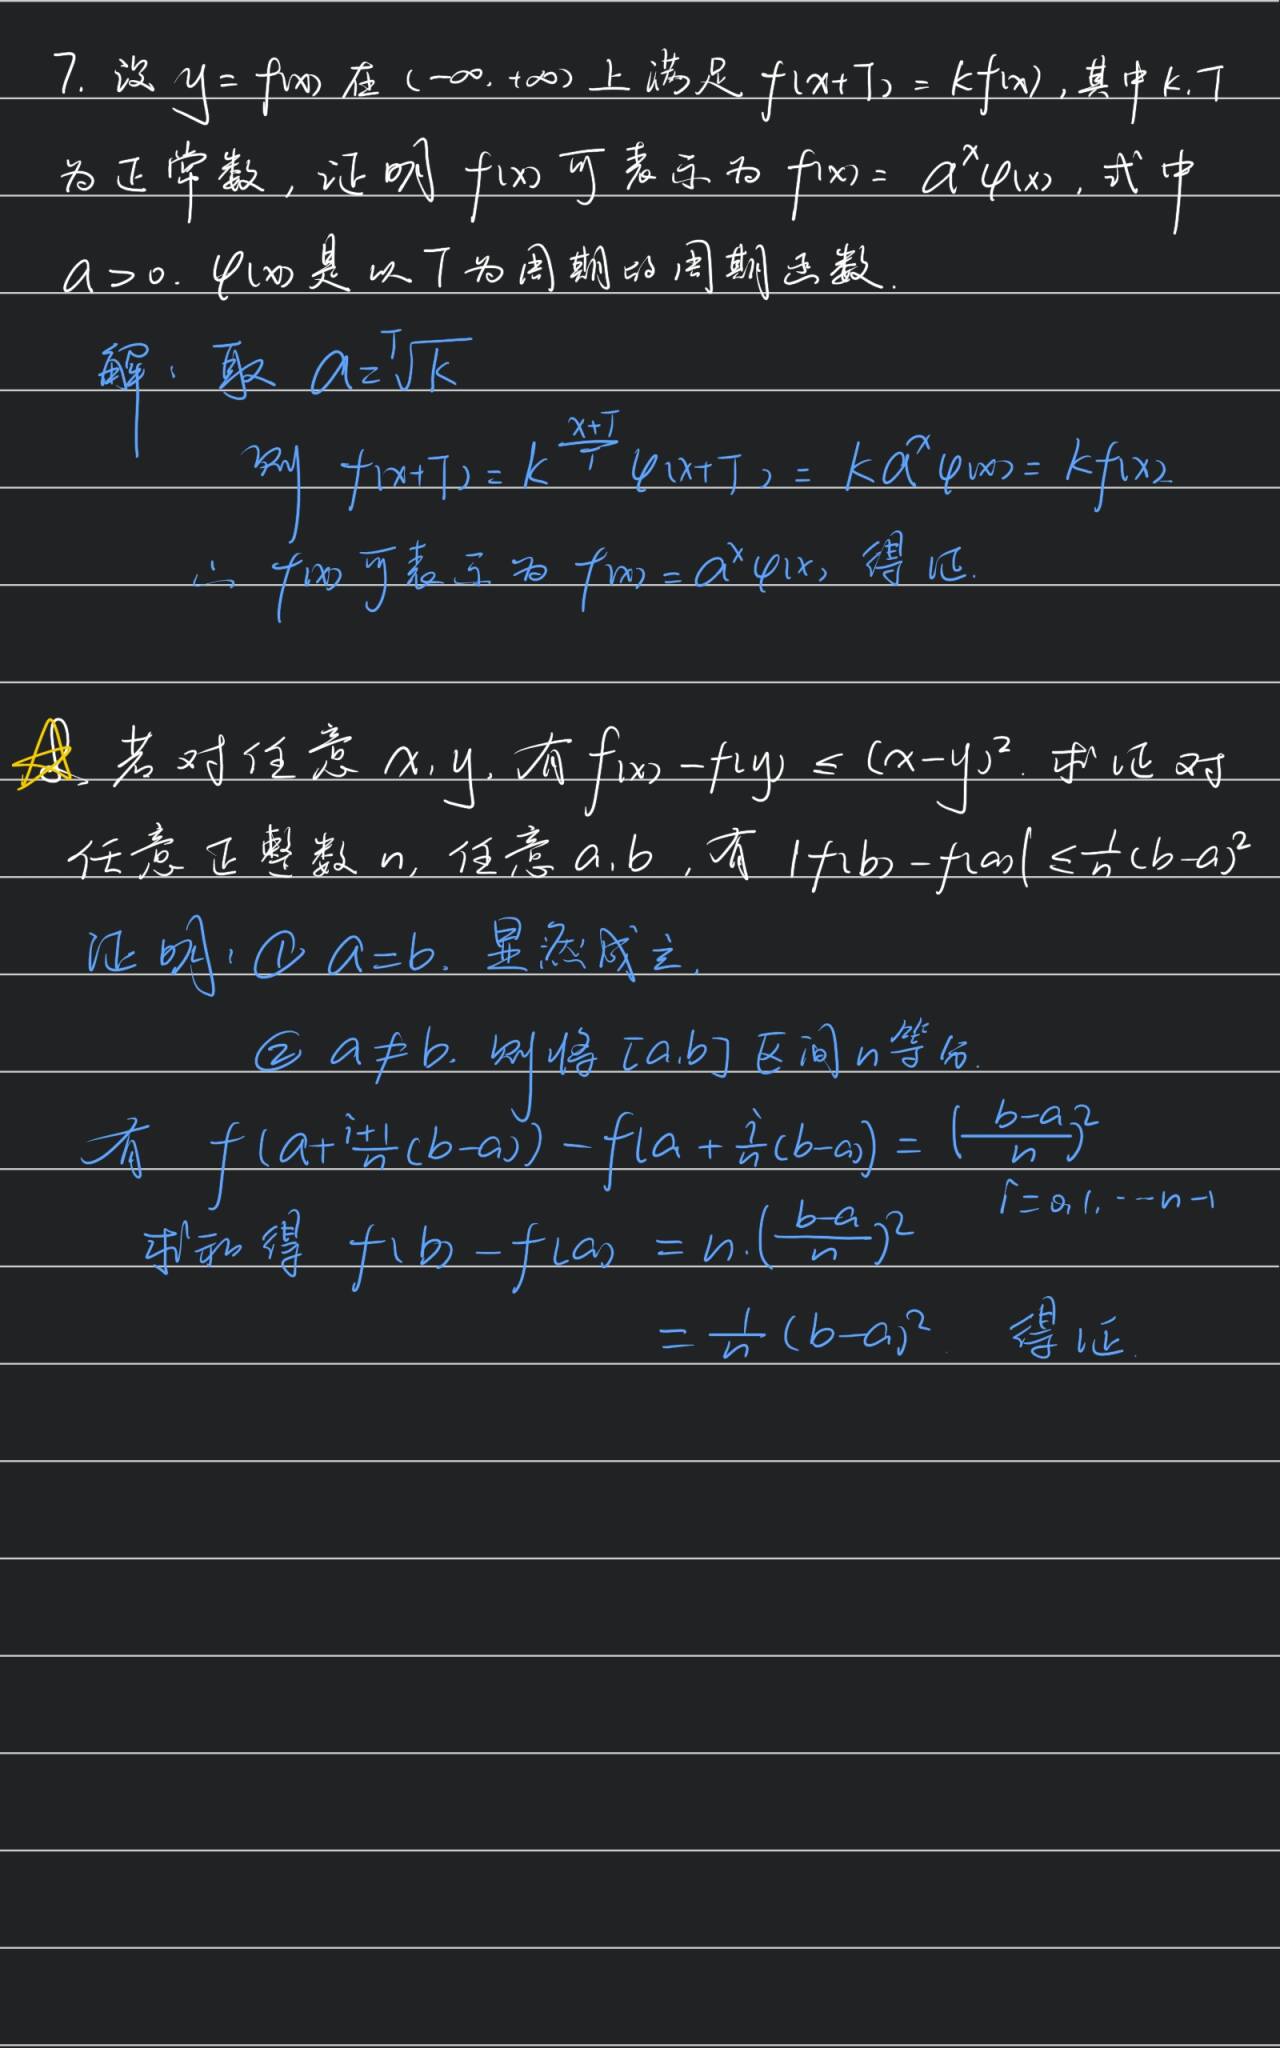 7. 设 y = f(x) 在 (-∞, +∞) 上满足 f(x+T) = kf(x), 其中 k, T
为正常数, 证明 f(x) 可表示为 f(x) = aˣφ(x), 式中
a > 0. φ(x) 是以 T 为周期的周期函数.
解: 取 a = ᵀ√k
则 f(x+T) = k^((x+T)/T) φ(x+T) = kaˣφ(x) = kf(x)
∴ f(x) 可表示为 f(x) = aˣφ(x) 得证.
8. 若对任意 x, y, 有 f(x) - f(y) ≤ (x-y)². 求证对
任意正整数 n, 任意 a, b, 有 |f(b) - f(a)| ≤ 1/n (b-a)²
证明: ① a = b. 显然成立.
② a ≠ b. 则将 [a,b] 区间 n 等分.
有 f(a + (i+1)/n (b-a)) - f(a + i/n (b-a)) = ((b-a)/n)²
i = 0, 1, ··· n-1
求和得 f(b) - f(a) = n·((b-a)/n)²
= 1/n (b-a)² 得证.